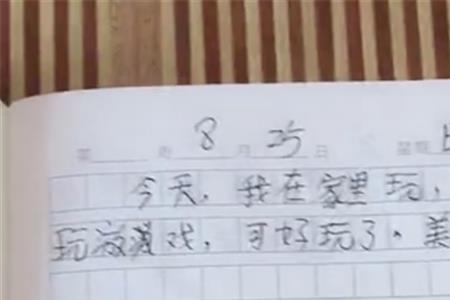 8 月 25 日 星期
今天，我在家里玩，
玩戏，可好玩了。美